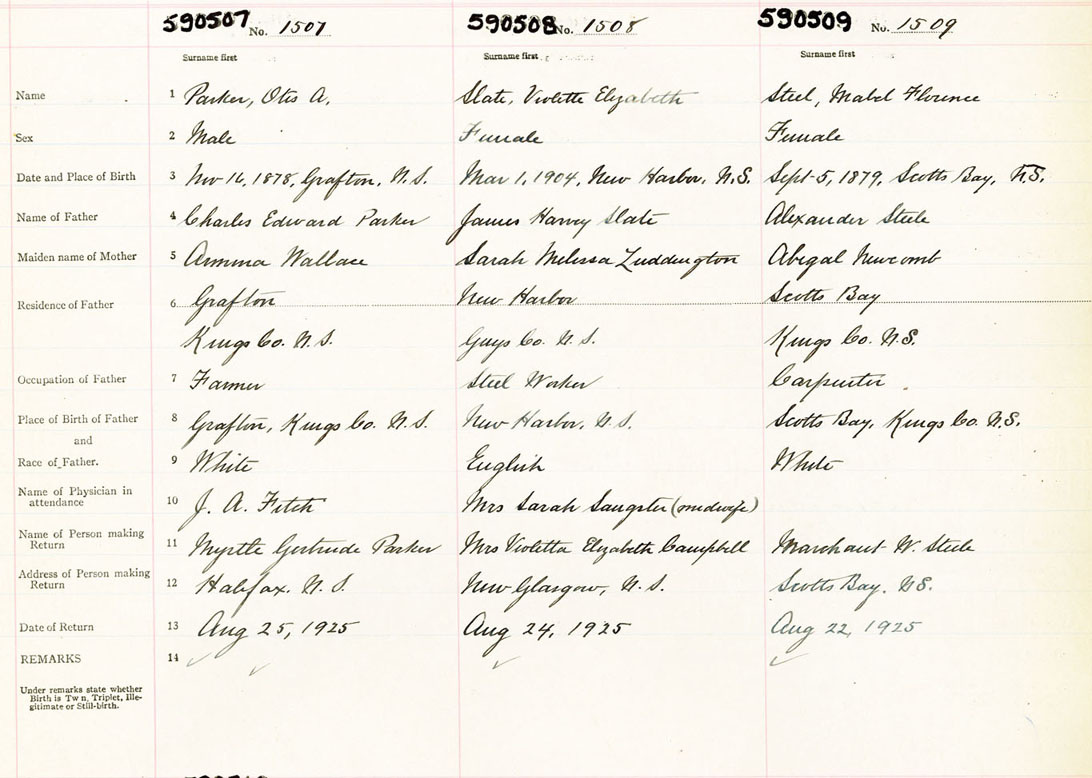 590507 No. 1507 590508 No. 1508 590509 No. 1509
Surname first Surname first Surname first
Name 1 Parker, Otis A. Slate, Violette Elizabeth Steel, Mabel Florence
Sex 2 Male Female Female
Date and Place of Birth 3 Nov 16, 1878, Grafton, N.S. Mar 1, 1904, New Harbor, N.S. Sept 5, 1879, Scotts Bay, N.S.
Name of Father 4 Charles Edward Parker James Harvey Slate Alexander Steele
Maiden name of Mother 5 Ammina Wallace Sarah Melissa Luddington Abigal Newcomb
Residence of Father 6 Grafton New Harbor Scotts Bay
Kings Co. N.S. Guys Co. N.S. Kings Co. N.S.
Occupation of Father 7 Farmer Steel Worker Carpenter
Place of Birth of Father 8 Grafton, Kings Co. N.S. New Harbor, N.S. Scotts Bay, Kings Co. N.S.
and
Race of Father. 9 White English White
Name of Physician in
attendance 10 J. A. Fitch Mrs Sarah Sangster (midwife)
Name of Person making
Return 11 Myrtle Gertrude Parker Mrs Violetta Elizabeth Campbell Marchant W. Steele
Address of Person making
Return 12 Halifax. N.S. New Glasgow, N.S. Scotts Bay. N.S.
Date of Return 13 Aug 25, 1925 Aug 24, 1925 Aug 22, 1925
REMARKS 14
Under remarks state whether
Birth is Twn, Triplet, Ille-
gitimate or Still-birth.